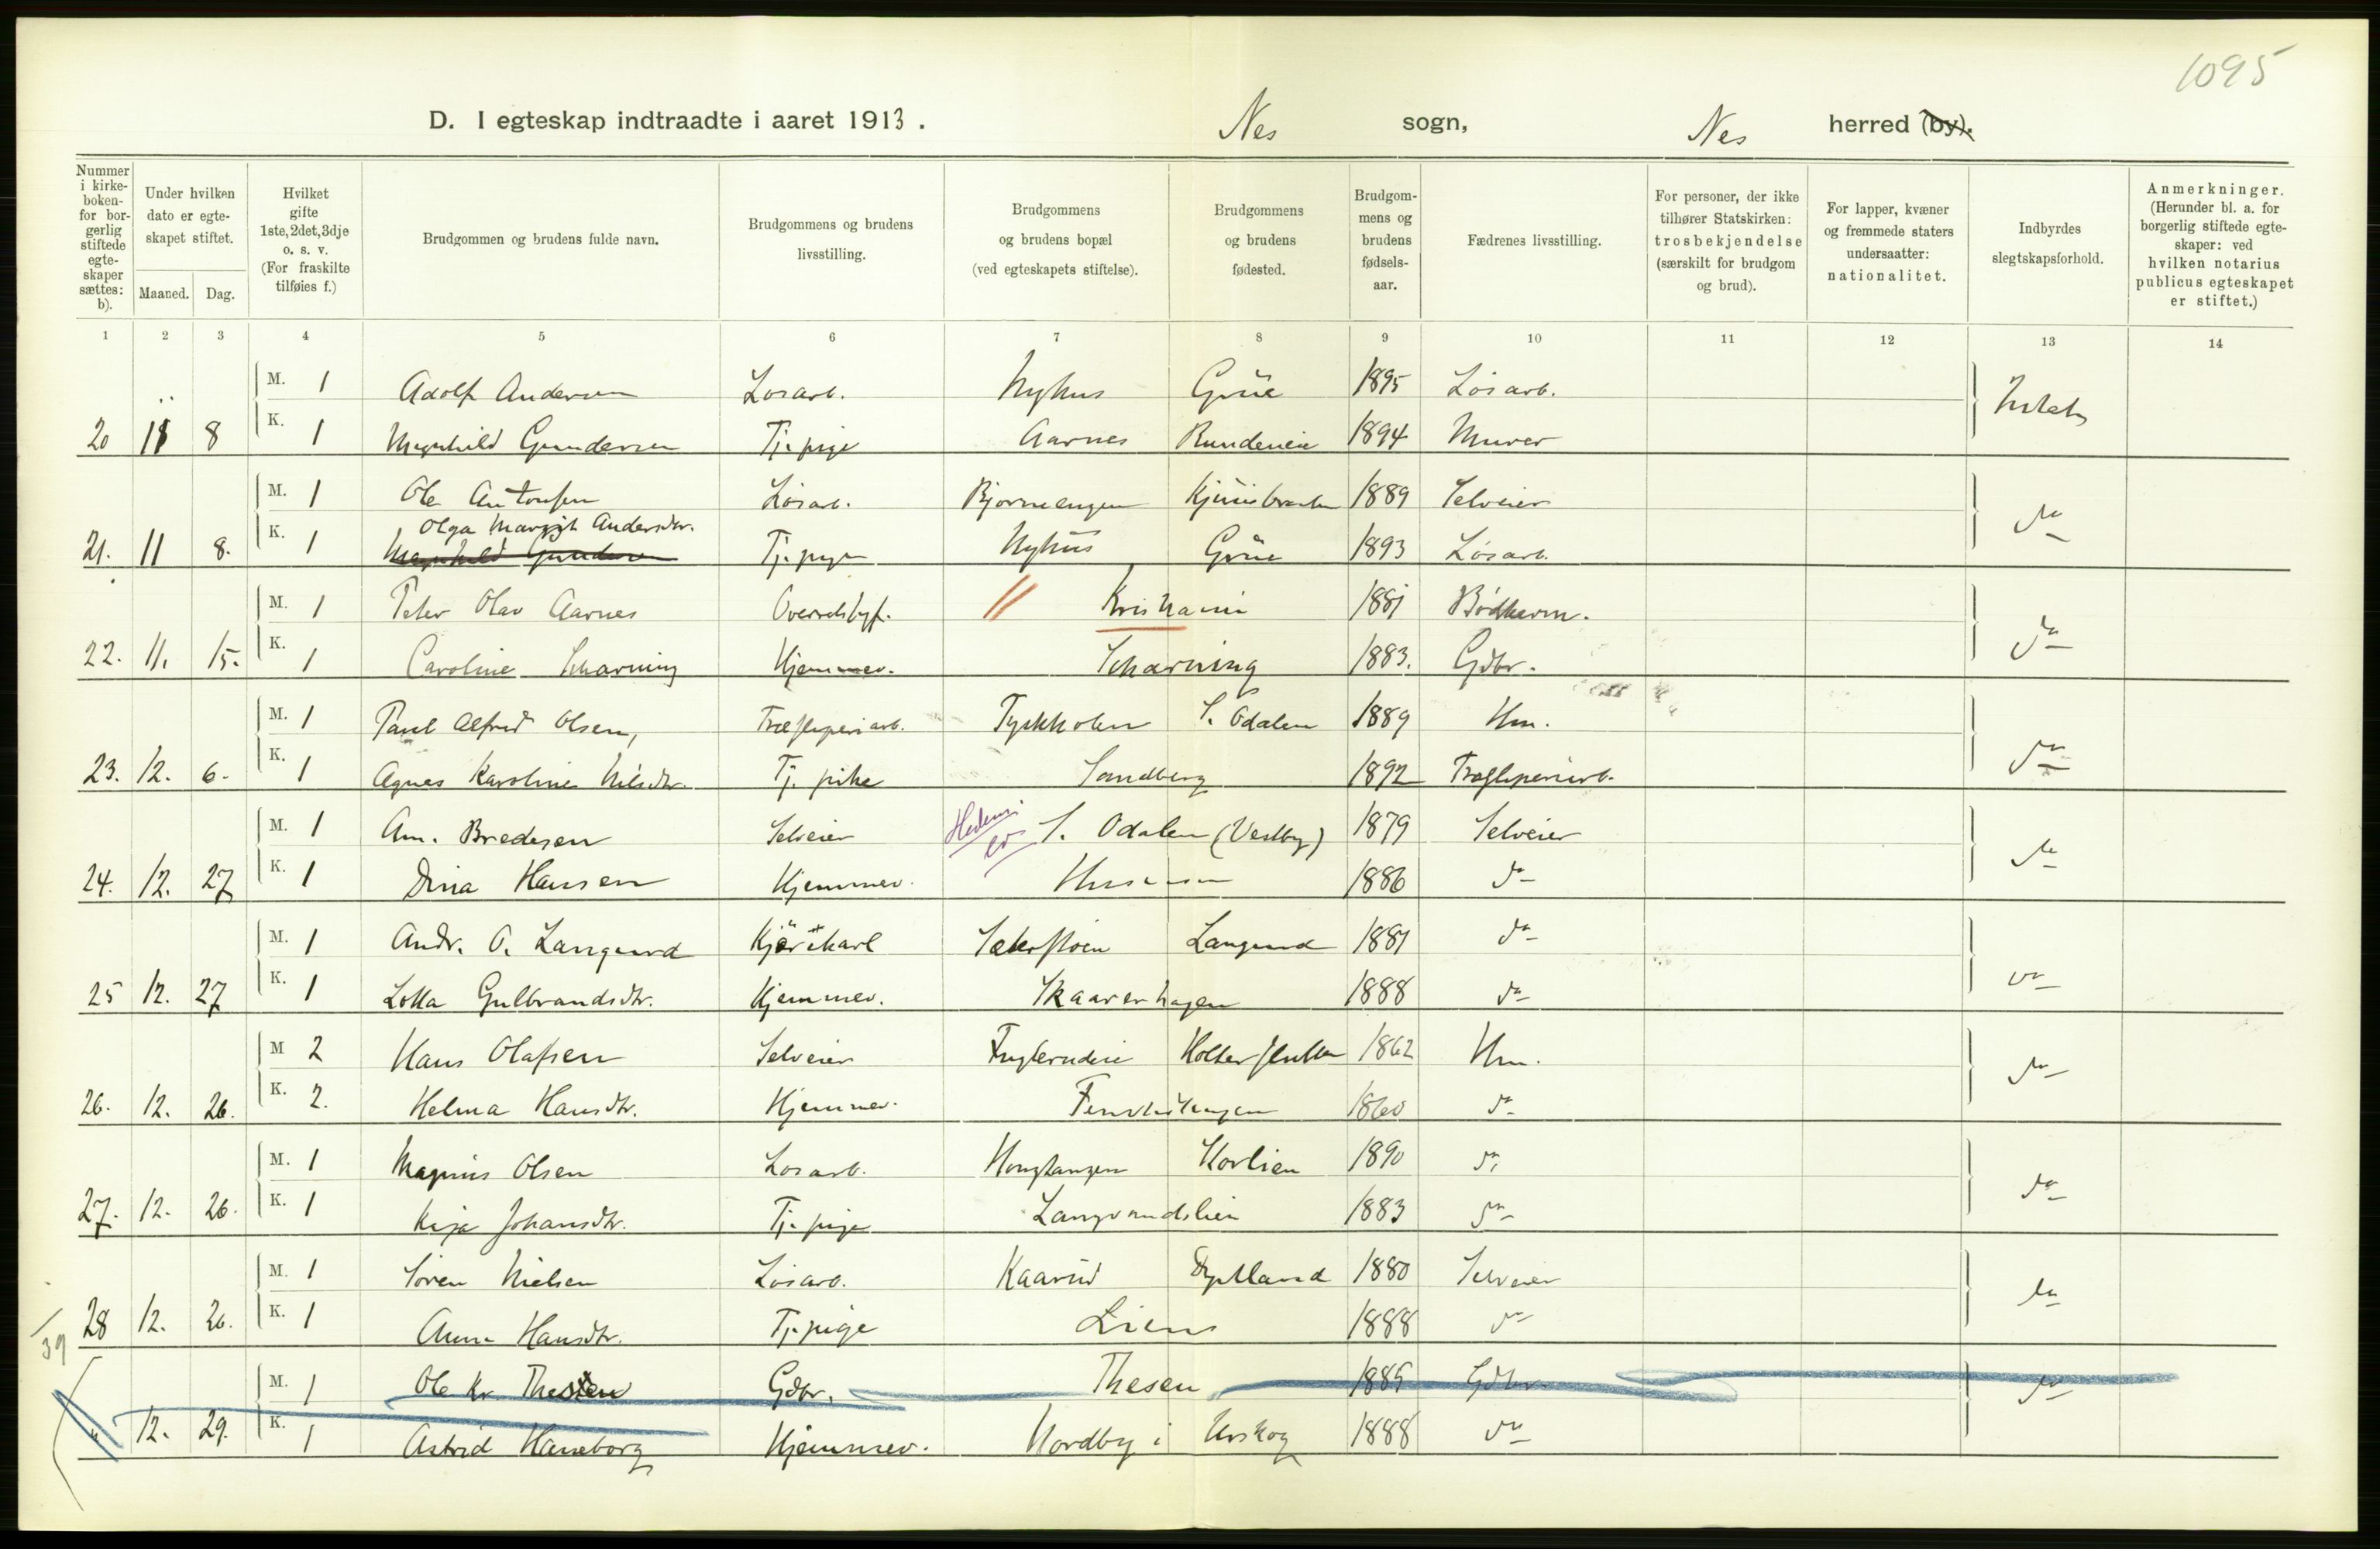 1095
D. I egteskap indtraadte i aaret 1913. Nes sogn, Nes herred (by).
Nummer i kirkeboken- for borgerlig stiftede egteskaper sættes: b). Under hvilken dato er egteskapet stiftet. Maaned. Dag. Hvilket gifte 1ste, 2det, 3dje o. s. v. (For fraskilte tilføies f.) Brudgommen og brudens fulde navn. Brudgommens og brudens livsstilling. Brudgommens og brudens bopæl (ved egteskapets stiftelse). Brudgommens og brudens fødested. Brudgommens og brudens fødselsaar. Fædrenes livsstilling. For personer, der ikke tilhører Statskirken: trosbekjendelse (særskilt for brudgom og brud). For lapper, kvæner og fremmede staters undersaatter: nationalitet. Indbyrdes slegtskapsforhold. Anmerkninger. (Herunder bl. a. for borgerlig stiftede egteskaper: ved hvilken notarius publicus egteskapet er stiftet.)
1 2 3 4 5 6 7 8 9 10 11 12 13 14
M. 1 Adolf Andersen Løsarb. Nyhus Grue 1895 Løsarb.
20 11 8 K. 1 Magnhild Gundersen Tj. pige Aarnes Rundeneie 1894 Murer
M. 1 Ole Antonsen Løsarb. Bjørneengen 1889 Selveier
Olga Margit Andersdtr.
21. 11 8. K. 1 Magnhild Gundersen Tj. pige Nyhus Grue 1893 Løsarb.
M. 1 Peter Olav Aarnes Kristiania 1881 Bødkerm.
22. 11. 15. K. 1 Caroline Scharning Hjemmev. Scharning 1883. Gdbr.
M. 1 Paul Alfred Olsen, Træsliperiarb. Tyskholen S. Odalen 1889 Hm.
23. 12. 6. K. 1 Agnes Karoline Nilsdtr. Tj. pike Sandberg 1892 Træsliperiarb.
M. 1 Am. Bredesen Selveier S. Odalen (Vestby) 1879 Selveier
24. 12. 27 K. 1 Dina Hansen Hjemmev. 1886 do
M. 1 Andr. O. Langurd Langurd 1881 do
25 12. 27 K. 1 Lotta Gulbrandsdtr. Hjemmev. Skaarerhagen 1888 do
M 2 Hans Olafsen Selveier Fuglerudeie 1862 Hm.
26. 12. 26. K. 2. Helma Hansdtr. Hjemmev. 1860 do
M. 1 Magnus Olsen Løsarb. Korlien 1890 do
27. 12. 26. K. 1 Kaja Johansdtr. Tj. pige Langrandslien 1883 do
M. 1 Søren Nielsen Løsarb. Kaarud Jylland 1880 Selveier
28 12. 26. K. 1 Anna Hansdtr. Tj. pige Liens 1888 do
39
M. 1 Ole Kr. Thesen Gdbr. Thesen 1885 Gdbr.
" 12. 29. K. 1 Astrid Haneborg Hjemmev. Nordby i Urskog 1888 do